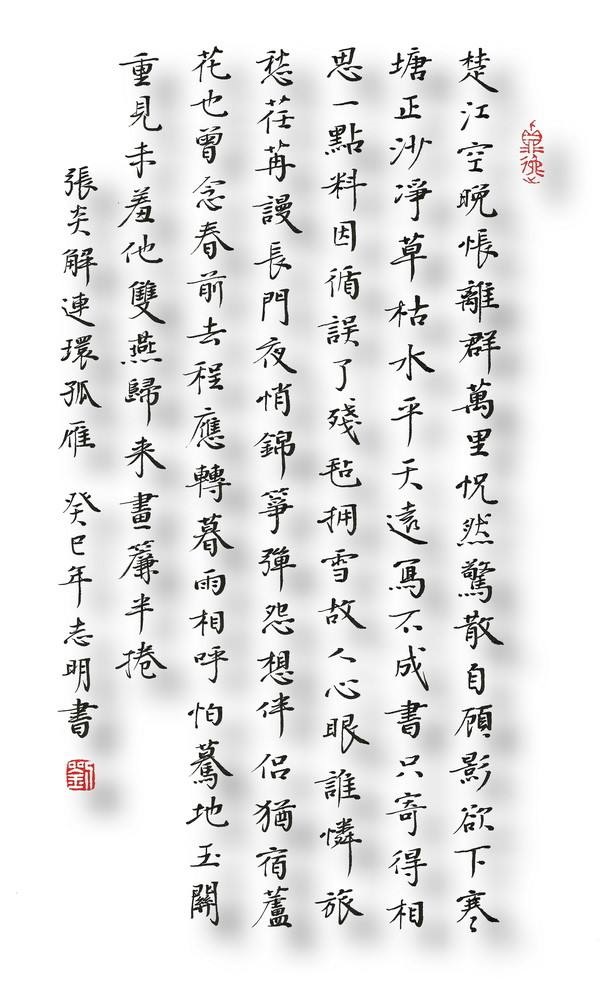 楚江空晚悵離群萬里怳然驚散自顧影欲下寒
塘正沙凈草枯水平天遠寫不成書只寄得相
思一點料因循誤了殘毡拥雪故人心眼誰憐旅
愁荏苒謾長門夜悄錦箏彈怨想伴侶猶宿蘆
花也曾念春前去程應轉暮雨相呼怕驀地玉關
重見未羞他雙燕歸来畫簾半捲
張炎解連環孤雁 癸巳年志明書
劉